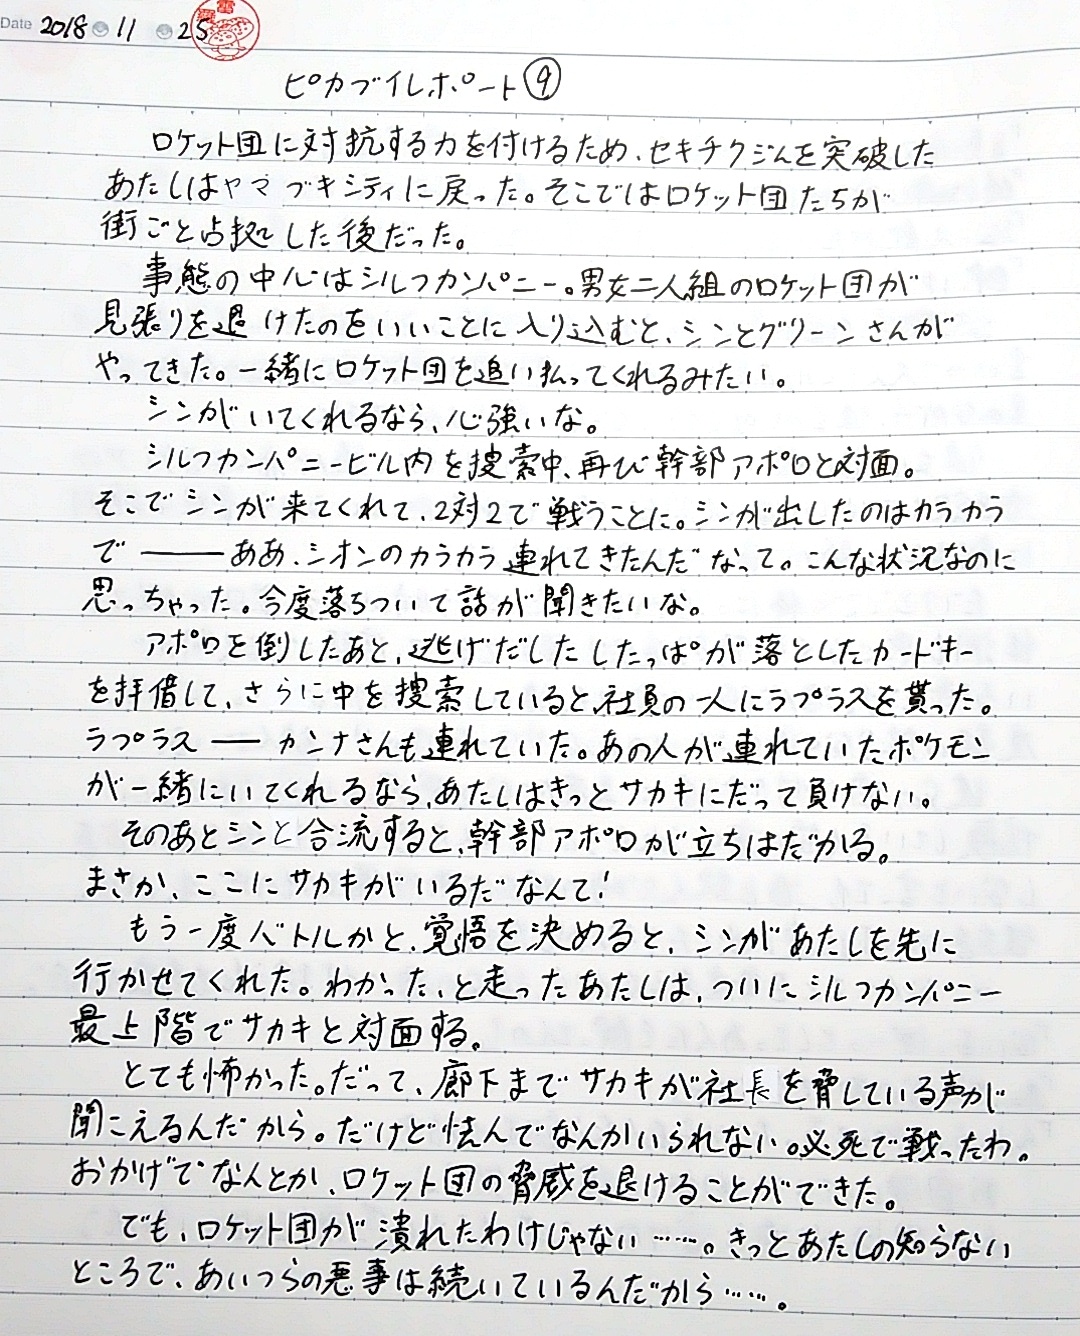 Date 2018 11 25
ピカブイレポート⑨
ロケット団に対抗する力を付けるため、セキチクジムを突破した
あたしはヤマブキシティに戻った。そこではロケット団たちが
街ごと占拠した後だった。
事態の中心はシルフカンパニー。男女二人組のロケット団が
見張りを退けたのをいいことに入り込むと、シンとグリーンさんが
やってきた。一緒にロケット団を追い払ってくれるみたい。
シンがいてくれるなら、心強いな。
シルフカンパニービル内を捜索中、再び幹部アポロと対面。
そこでシンが来てくれて、2対2で戦うことに。シンが出したのはカラカラ
で――ああ、シオンのカラカラ連れてきたんだなって。こんな状況なのに
思っちゃった。今度落ちついて話が聞きたいな。
アポロを倒したあと、逃げだしたしたっぱが落としたカードキー
を拝借して、さらに中を捜索していると、社員の一人にラプラスを貰った。
ラプラス――カンナさんも連れていた。あの人が連れていたポケモン
が一緒にいてくれるなら、あたしはきっとサカキにだって負けない。
そのあとシンと合流すると、幹部アポロが立ちはだかる。
まさか、ここにサカキがいるだなんて!
もう一度バトルかと、覚悟を決めると、シンがあたしを先に
行かせてくれた。わかった、と走ったあたしは、ついにシルフカンパニー
最上階でサカキと対面する。
とても怖かった。だって、廊下までサカキが社長を脅している声が
聞こえるんだから。だけど怯んでなんかいられない。必死で戦ったわ。
おかげでなんとか、ロケット団の脅威を退けることができた。
でも、ロケット団が潰れたわけじゃない……。きっとあたしの知らない
ところで、あいつらの悪事は続いているんだから……。